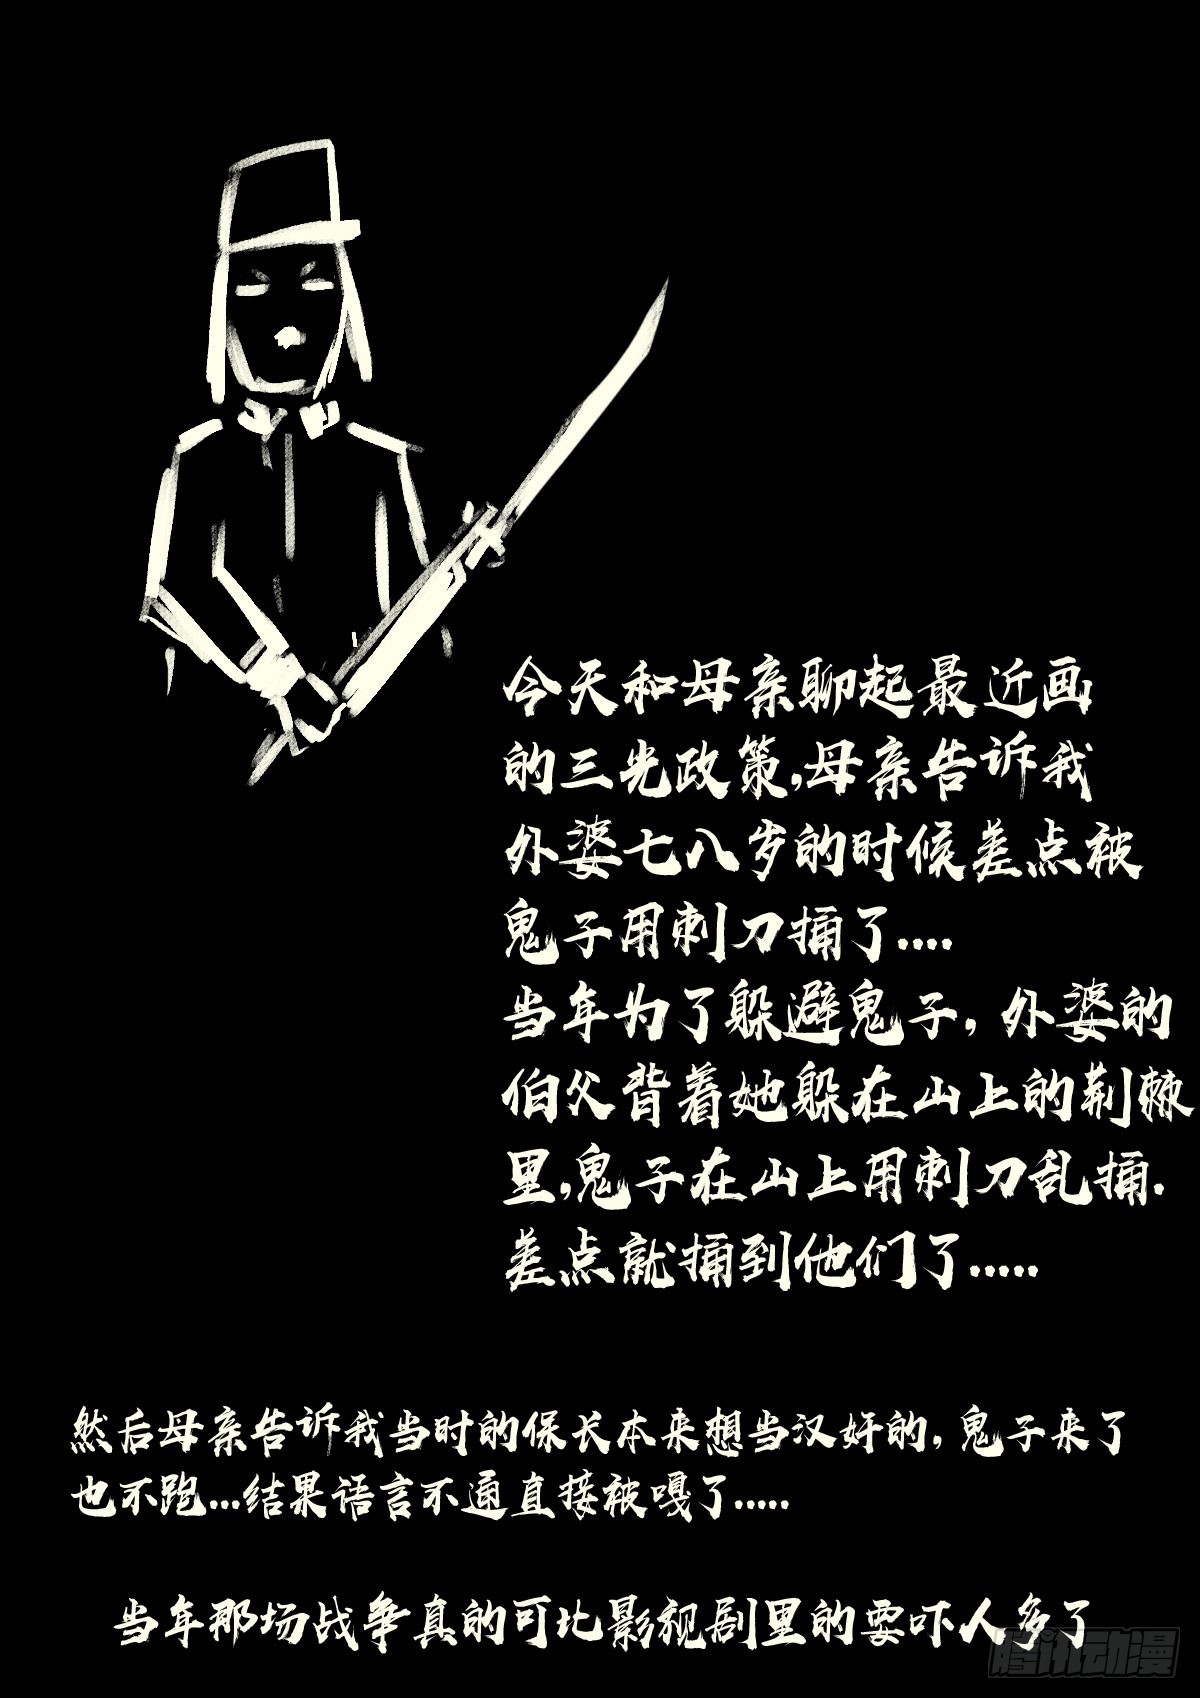 今天和母亲聊起最近画
的三光政策,母亲告诉我
外婆七八岁的时候差点被
鬼子用刺刀捅了....
当年为了躲避鬼子,外婆的
伯父背着她躲在山上的荆棘
里,鬼子在山上用刺刀乱捅.
差点就捅到他们了.....
然后母亲告诉我当时的保长本来想当汉奸的,鬼子来了
也不跑...结果语言不通直接被嘎了.....
当年那场战争真的可比影视剧里的要吓人多了
腾讯动漫